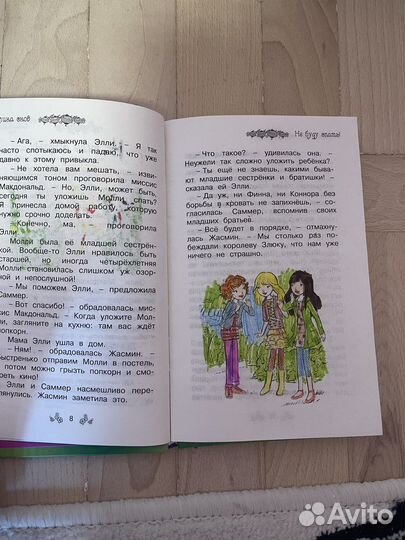 ушла снов
– Ага, – хмыкнула Элли. – Я так
насто спотыкаюсь и падаю, что уже
давно к этому привыкла.
– Не хотела вам мешать, – изви-
яющимся тоном проговорила миссис
Макдональд. – Но, Элли, может быть,
сегодня ты уложишь Молли спать?
Я принесла домой работу, которую
нужно срочно доделать.
– Конечно, ма, – проговорила
Элли.
Молли была её младшей сестрён-
кой. Вообще-то Элли нравилось быть
старшей, но иногда четырёхлетняя
Молли становилась слишком уж озор-
ной и непослушной!
– Мы поможем Элли, – предложила
Саммер.
– Вот спасибо! – обрадовалась мис-
сис Макдональд. – Когда уложите Мол-
ли, загляните на кухню: там вас ждёт
попкорн.
Мама Элли ушла в дом.
– Ням! – обрадовалась Жасмин. –
Быстренько отправим Молли в постель,
а потом можно грызть попкорн и смо-
треть кино!
Элли и Саммер насмешливо пере-
глянулись. Жасмин заметила это.
8
Не буду спать!
– Что такое? – удивилась она. –
Неужели так сложно уложить ребёнка?
– Ты ещё не знаешь, какими быва-
ют младшие сестрёнки и братишки! –
сказала ей Элли.
– Да уж, ни Финна, ни Коннора без
борьбы в кровать не запихнёшь, – со-
гласилась Саммер, вспомнив своих
младших братьев.
– Всё будет в порядке, – отмахну-
лась Жасмин. – Мы столько раз по-
беждали королеву Злюку, что нам уже
ничего не страшно.
Avito